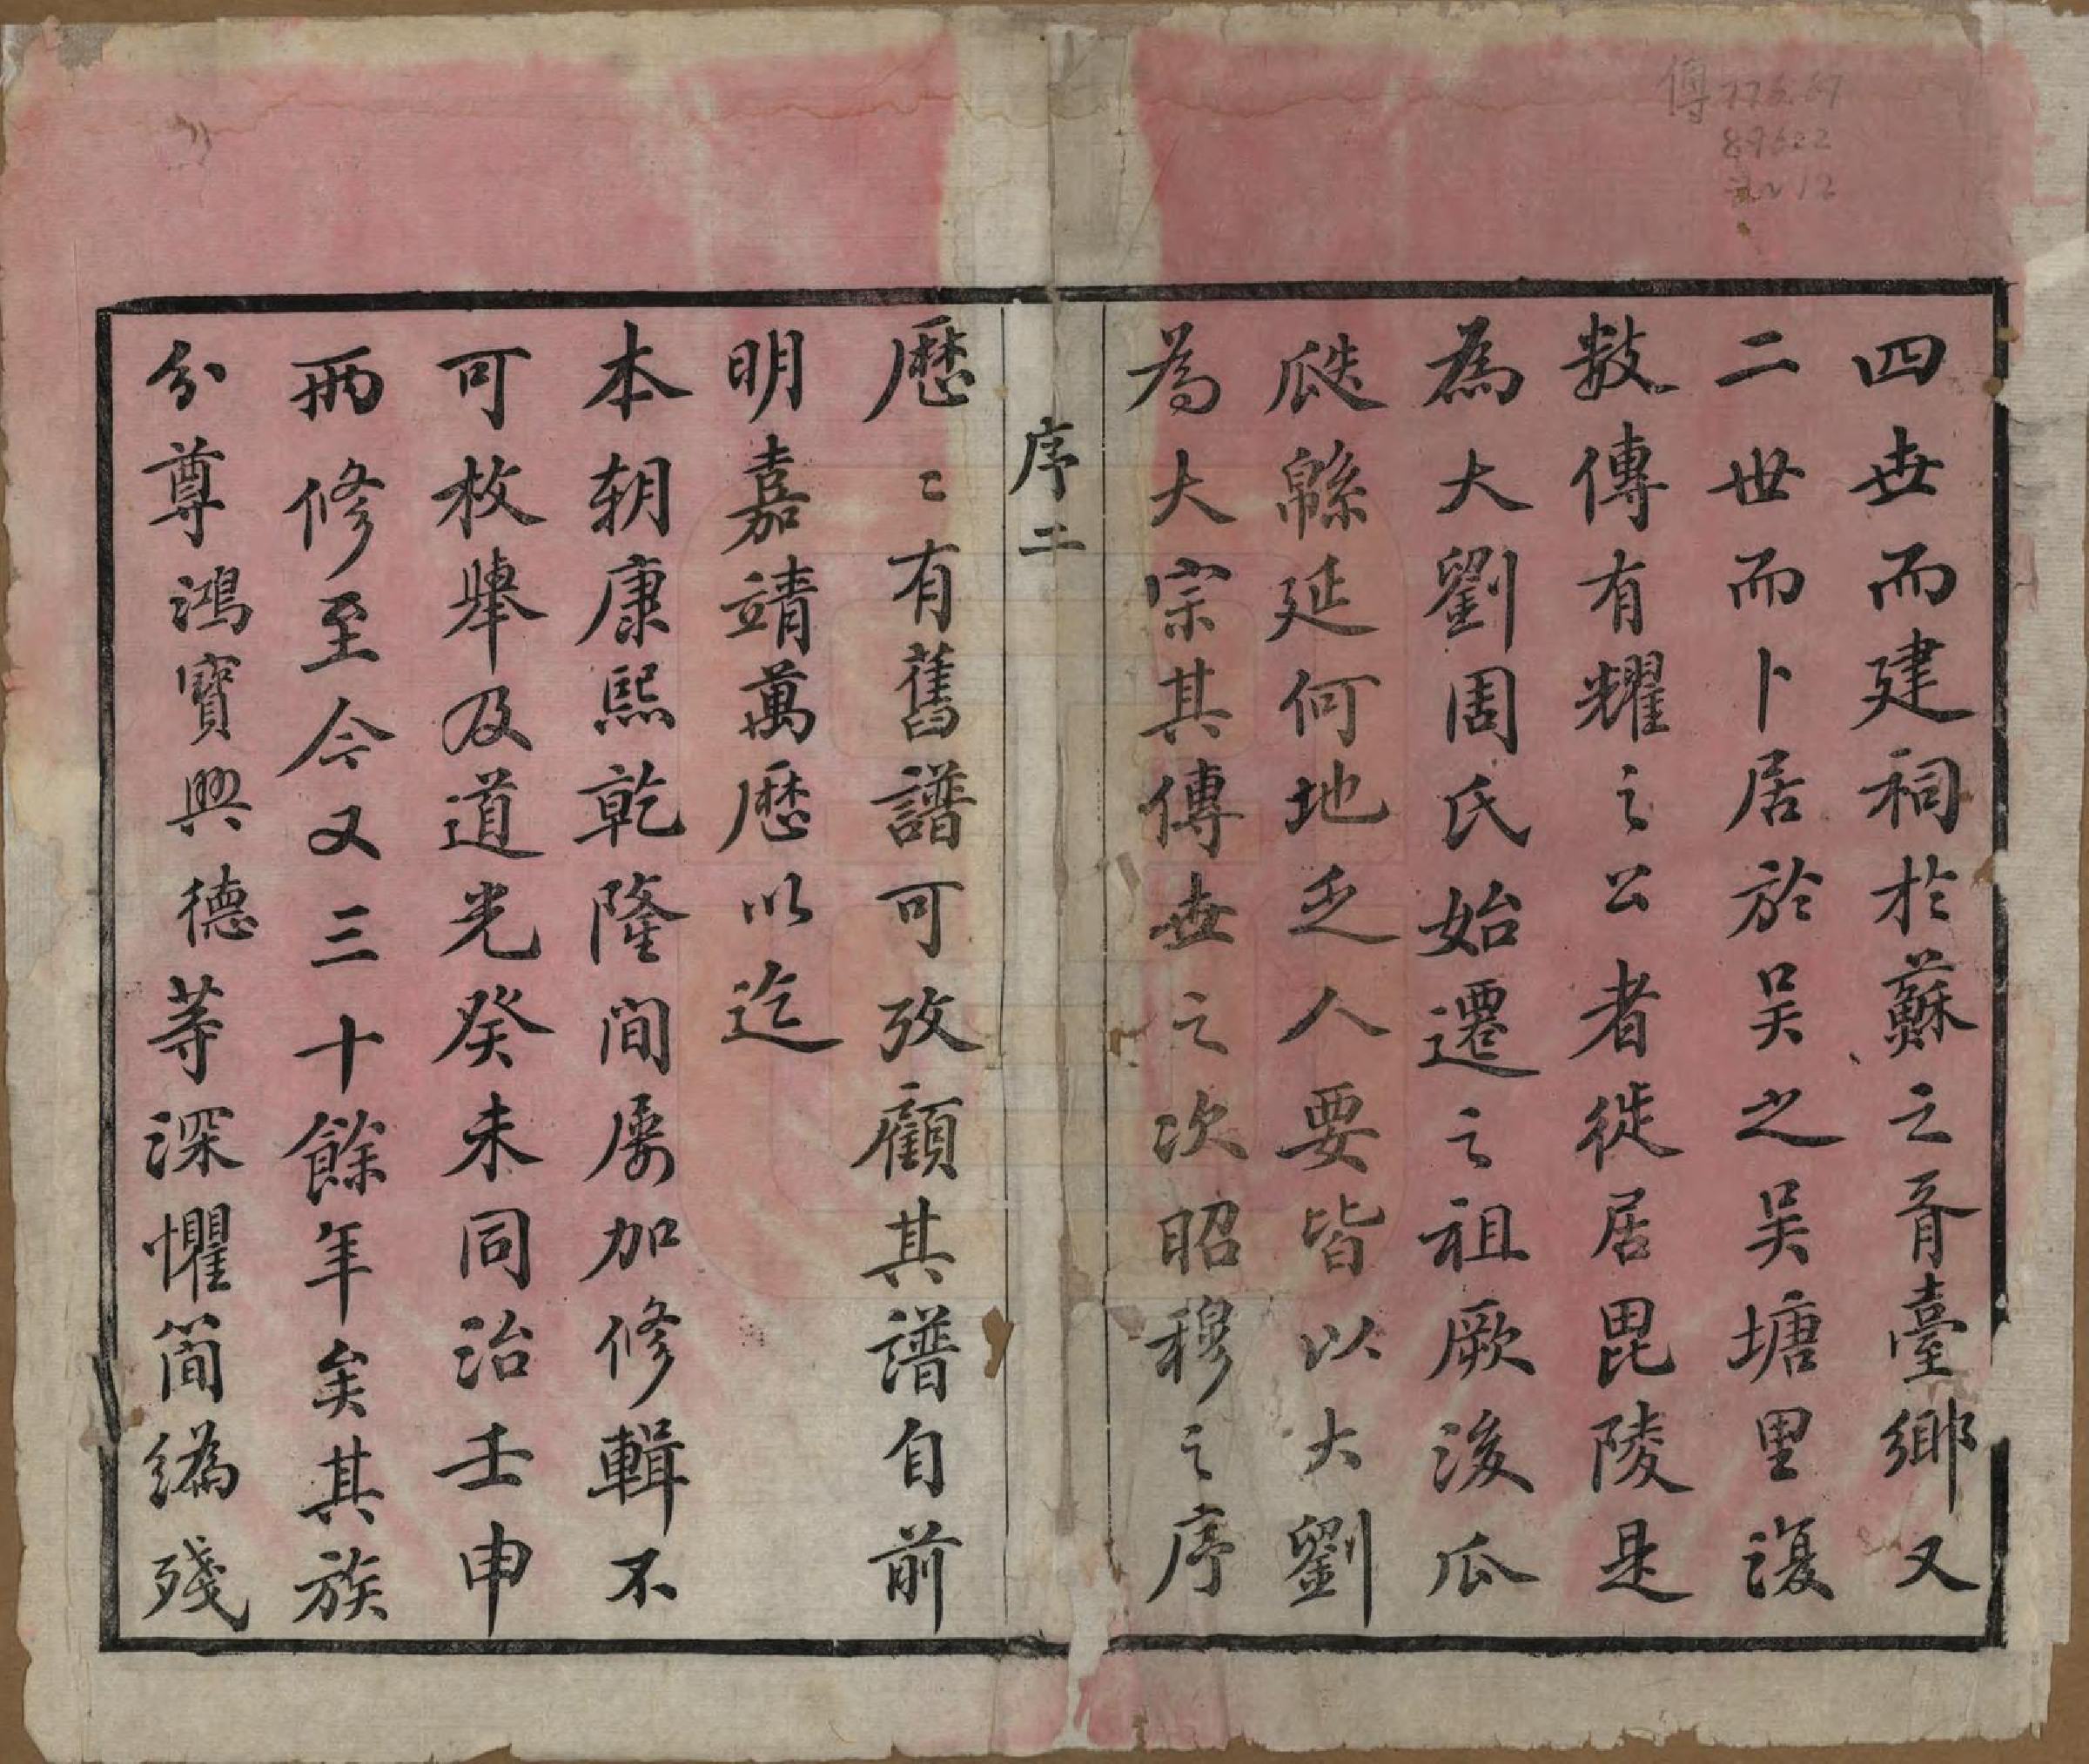 四世而建祠於蘇之胥臺鄉又
二世而卜居於吴之吴塘里復
數傳有耀之公者徙居毘陵是
為大劉周氏始遷之祖厥後瓜
瓞緜延何地乏人要皆以大劉
為大宗其傳世之次昭穆之序
序二
歷〻有舊譜可攷顧其譜自前
明嘉靖萬歷以迄
本朝康熙乾隆間屡加修輯不
可枚舉及道光癸未同治壬申
兩修至今又三十餘年矣其族
分尊鴻寳興德等深懼簡編殘
傳776.67
89622